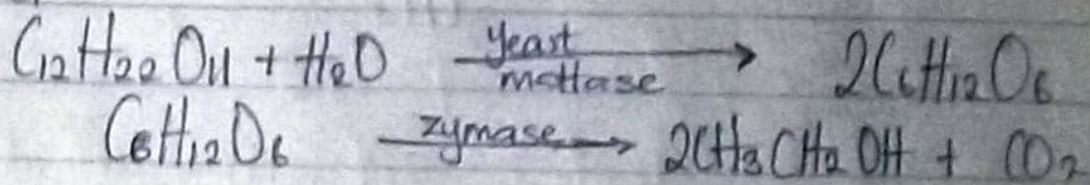 C₁₂H₂₂O₁₁ + H₂O yeast maltase → 2C₆H₁₂O₆
C₆H₁₂O₆ zymase → 2CH₃CH₂OH + CO₂